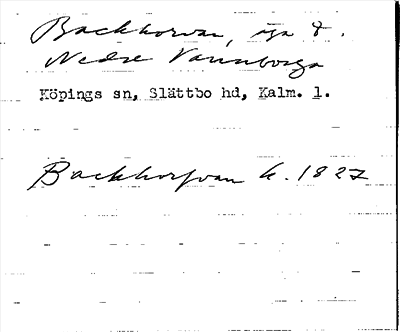 Backhorvan, äga t.
Nedre Vannborga
Köpings sn, Slättbo hd, Kalm. l.
Backhorfvan k. 1827